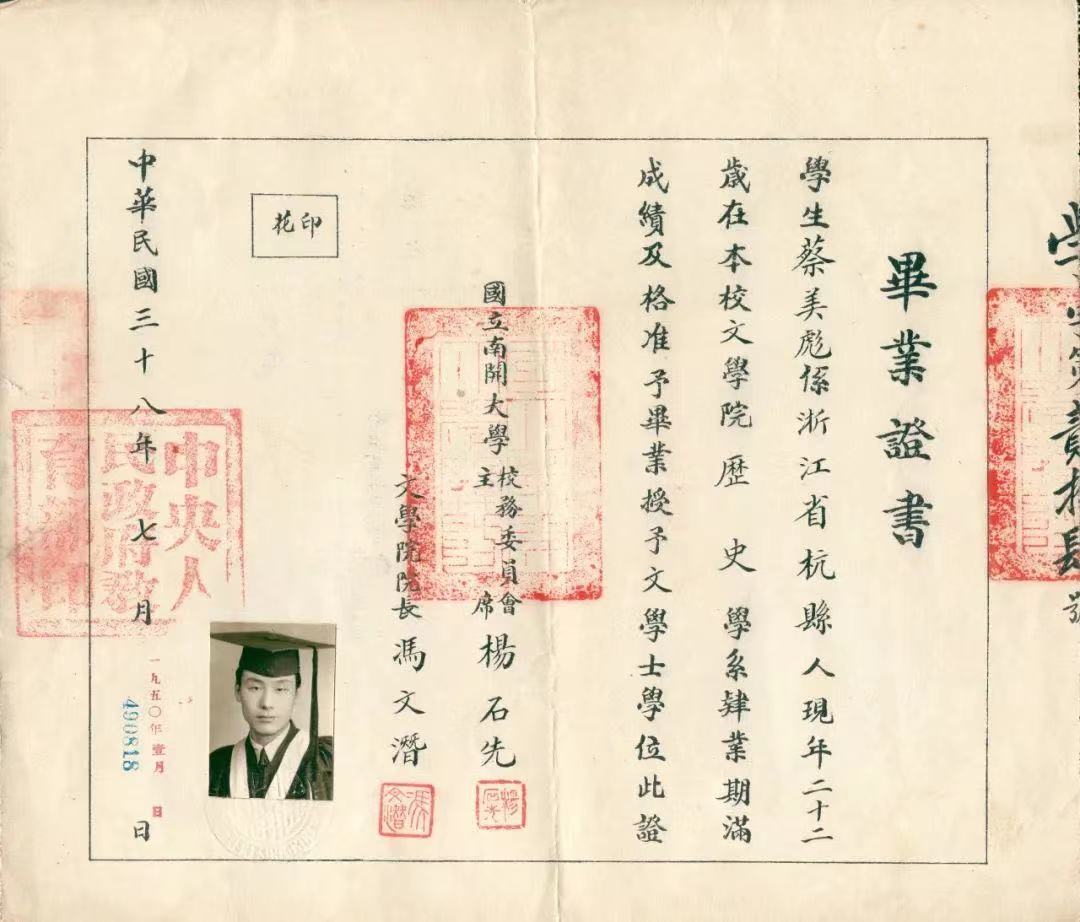 畢業證書
學生蔡美彪係浙江省杭縣人現年二十二
歲在本校文學院歷史學系肄業期滿
成績及格准予畢業授予文學士學位此證
國立南開大學校務委員會主席楊石先
楊石先
文學院院長馮文潛
馮文潛
印花
中華民國三十八年七月日
中央人民政府教育部印
一九五〇年壹月日
490818